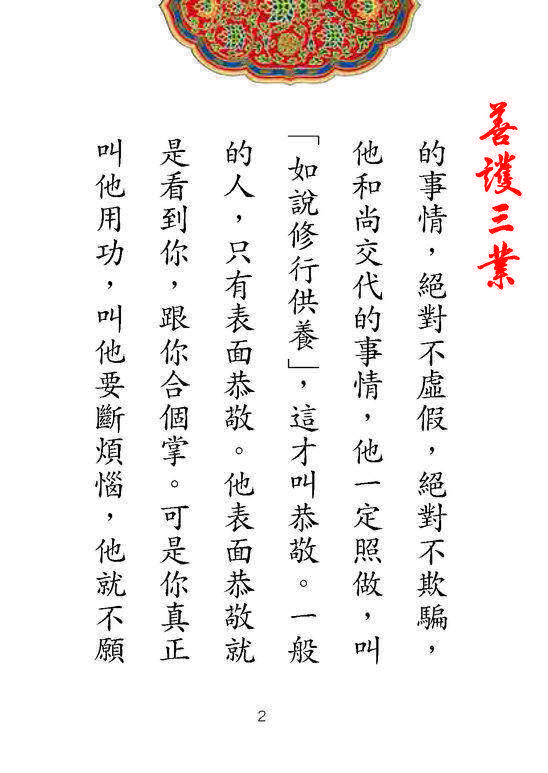 善護三業
的事情，絕對不虛假，絕對不欺騙，
他和尚交代的事情，他一定照做，叫
「如說修行供養」，這才叫恭敬。一般
的人，只有表面恭敬。他表面恭敬就
是看到你，跟你合個掌。可是你真正
叫他用功，叫他要斷煩惱，他就不願
2